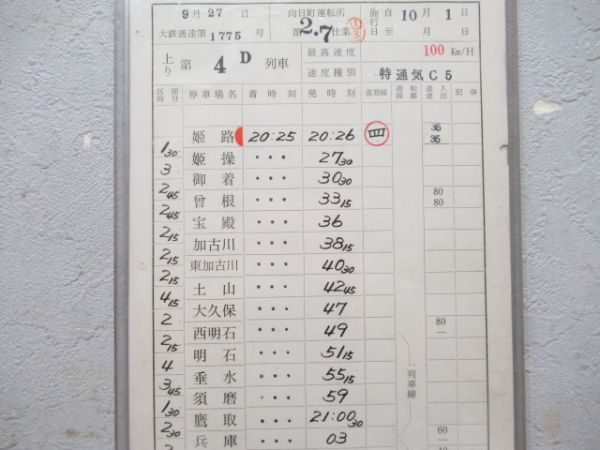 9月27日 向日町運転所 施行 自10月1日
大鉄通達第1775号 第2.7仕業 至 月 日
上り第4D列車 最高速度 100Km/H
速度種別 特通気C5
区間時分 停車場名 着時刻 発時刻 着発線 運転線路 進入進出 記事
姫路 20:25 20:26 四 35 35
1 30 姫操 ・・・ 27 30
3 御着 ・・・ 30 30
2 45 曾根 ・・・ 33 15 80 80
2 45 宝殿 ・・・ 36
2 15 加古川 ・・・ 38 15
2 15 東加古川 ・・・ 40 30
2 15 土山 ・・・ 42 45
4 15 大久保 ・・・ 47
2 西明石 ・・・ 49 80 —
2 15 明石 ・・・ 51 15
4 垂水 ・・・ 55 15 列車線
3 45 須磨 ・・・ 59
1 30 鷹取 ・・・ 21:00 30
2 30 兵庫 ・・・ 03 60 —
40